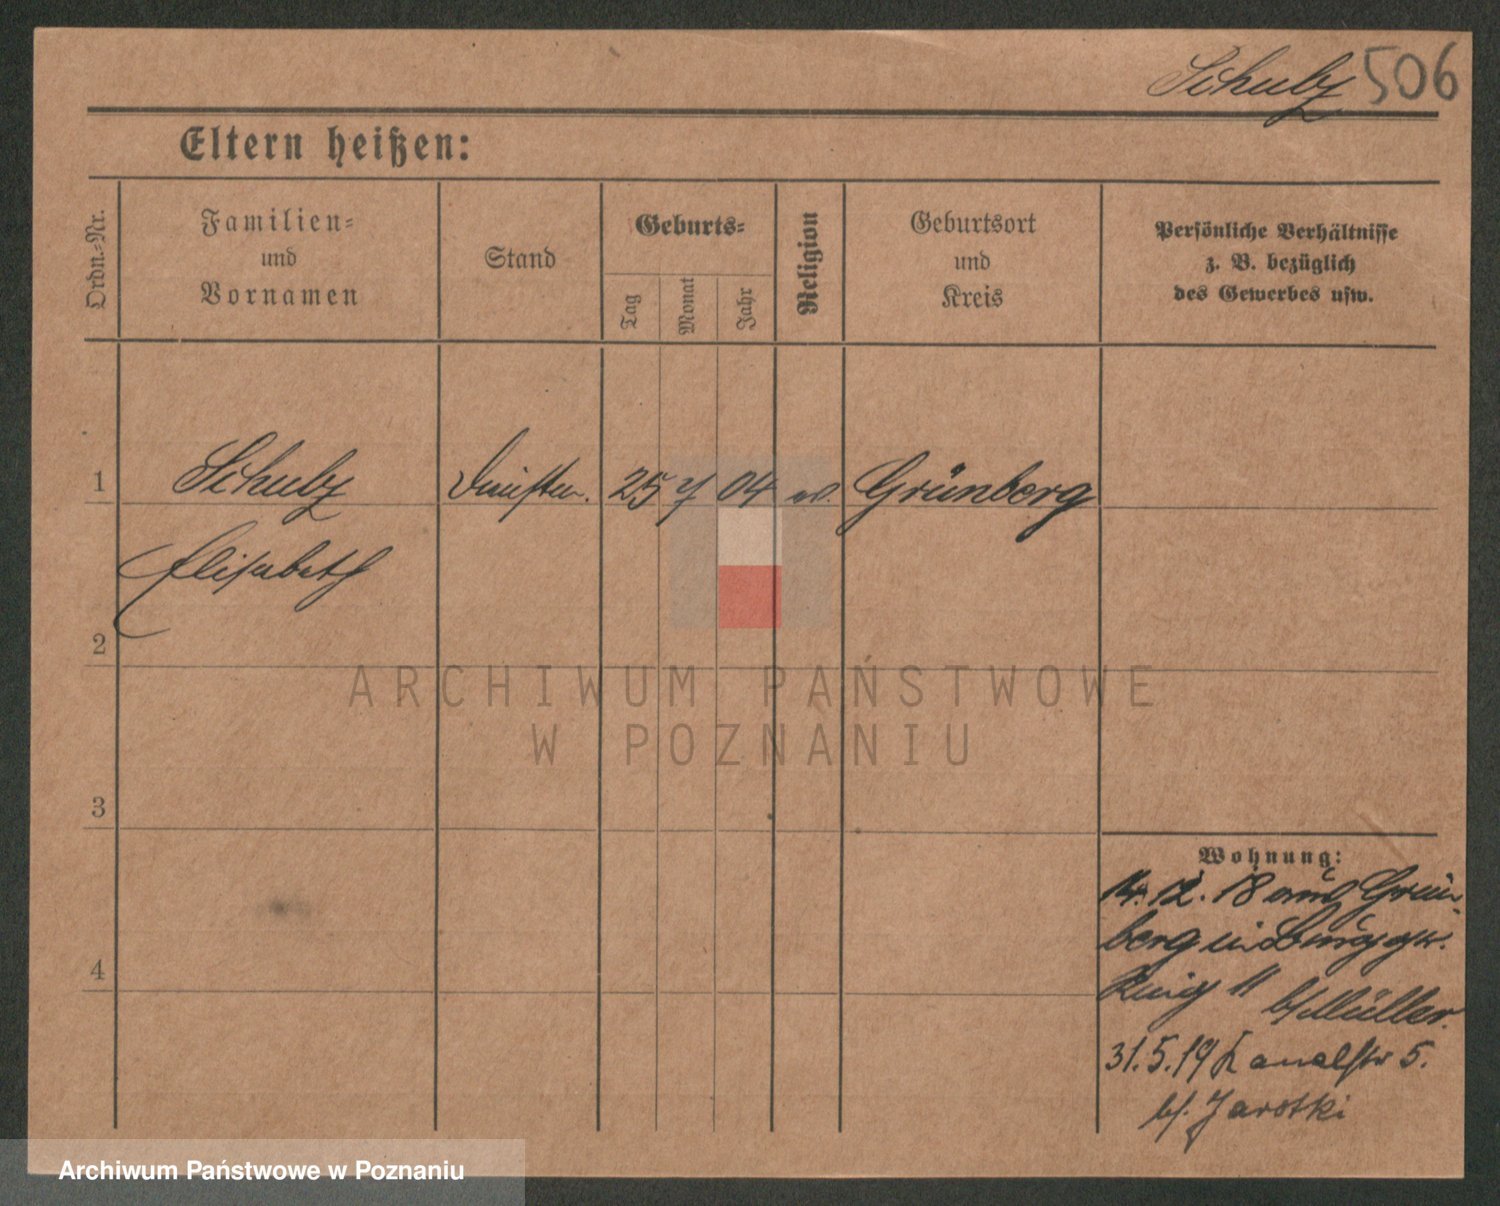 Schulz 506
Eltern heißen:
Ordn.-Nr.
Familien-
und
Vornamen
Stand
Geburts-
Tag
Monat
Jahr
Religion
Geburtsort
und
Kreis
Persönliche Verhältnisse
z. B. bezüglich
des Gewerbes usw.
1 Schulz 25 7 04 Grünberg
Elisabeth
2
3
4
Wohnung:
14.12.18 aus Grün-
berg in
Ring 11 b/Müller.
31.5.19 Kanalstr 5.
b/. Jarotki
ARCHIWUM PAŃSTWOWE
W POZNANIU
Archiwum Państwowe w Poznaniu